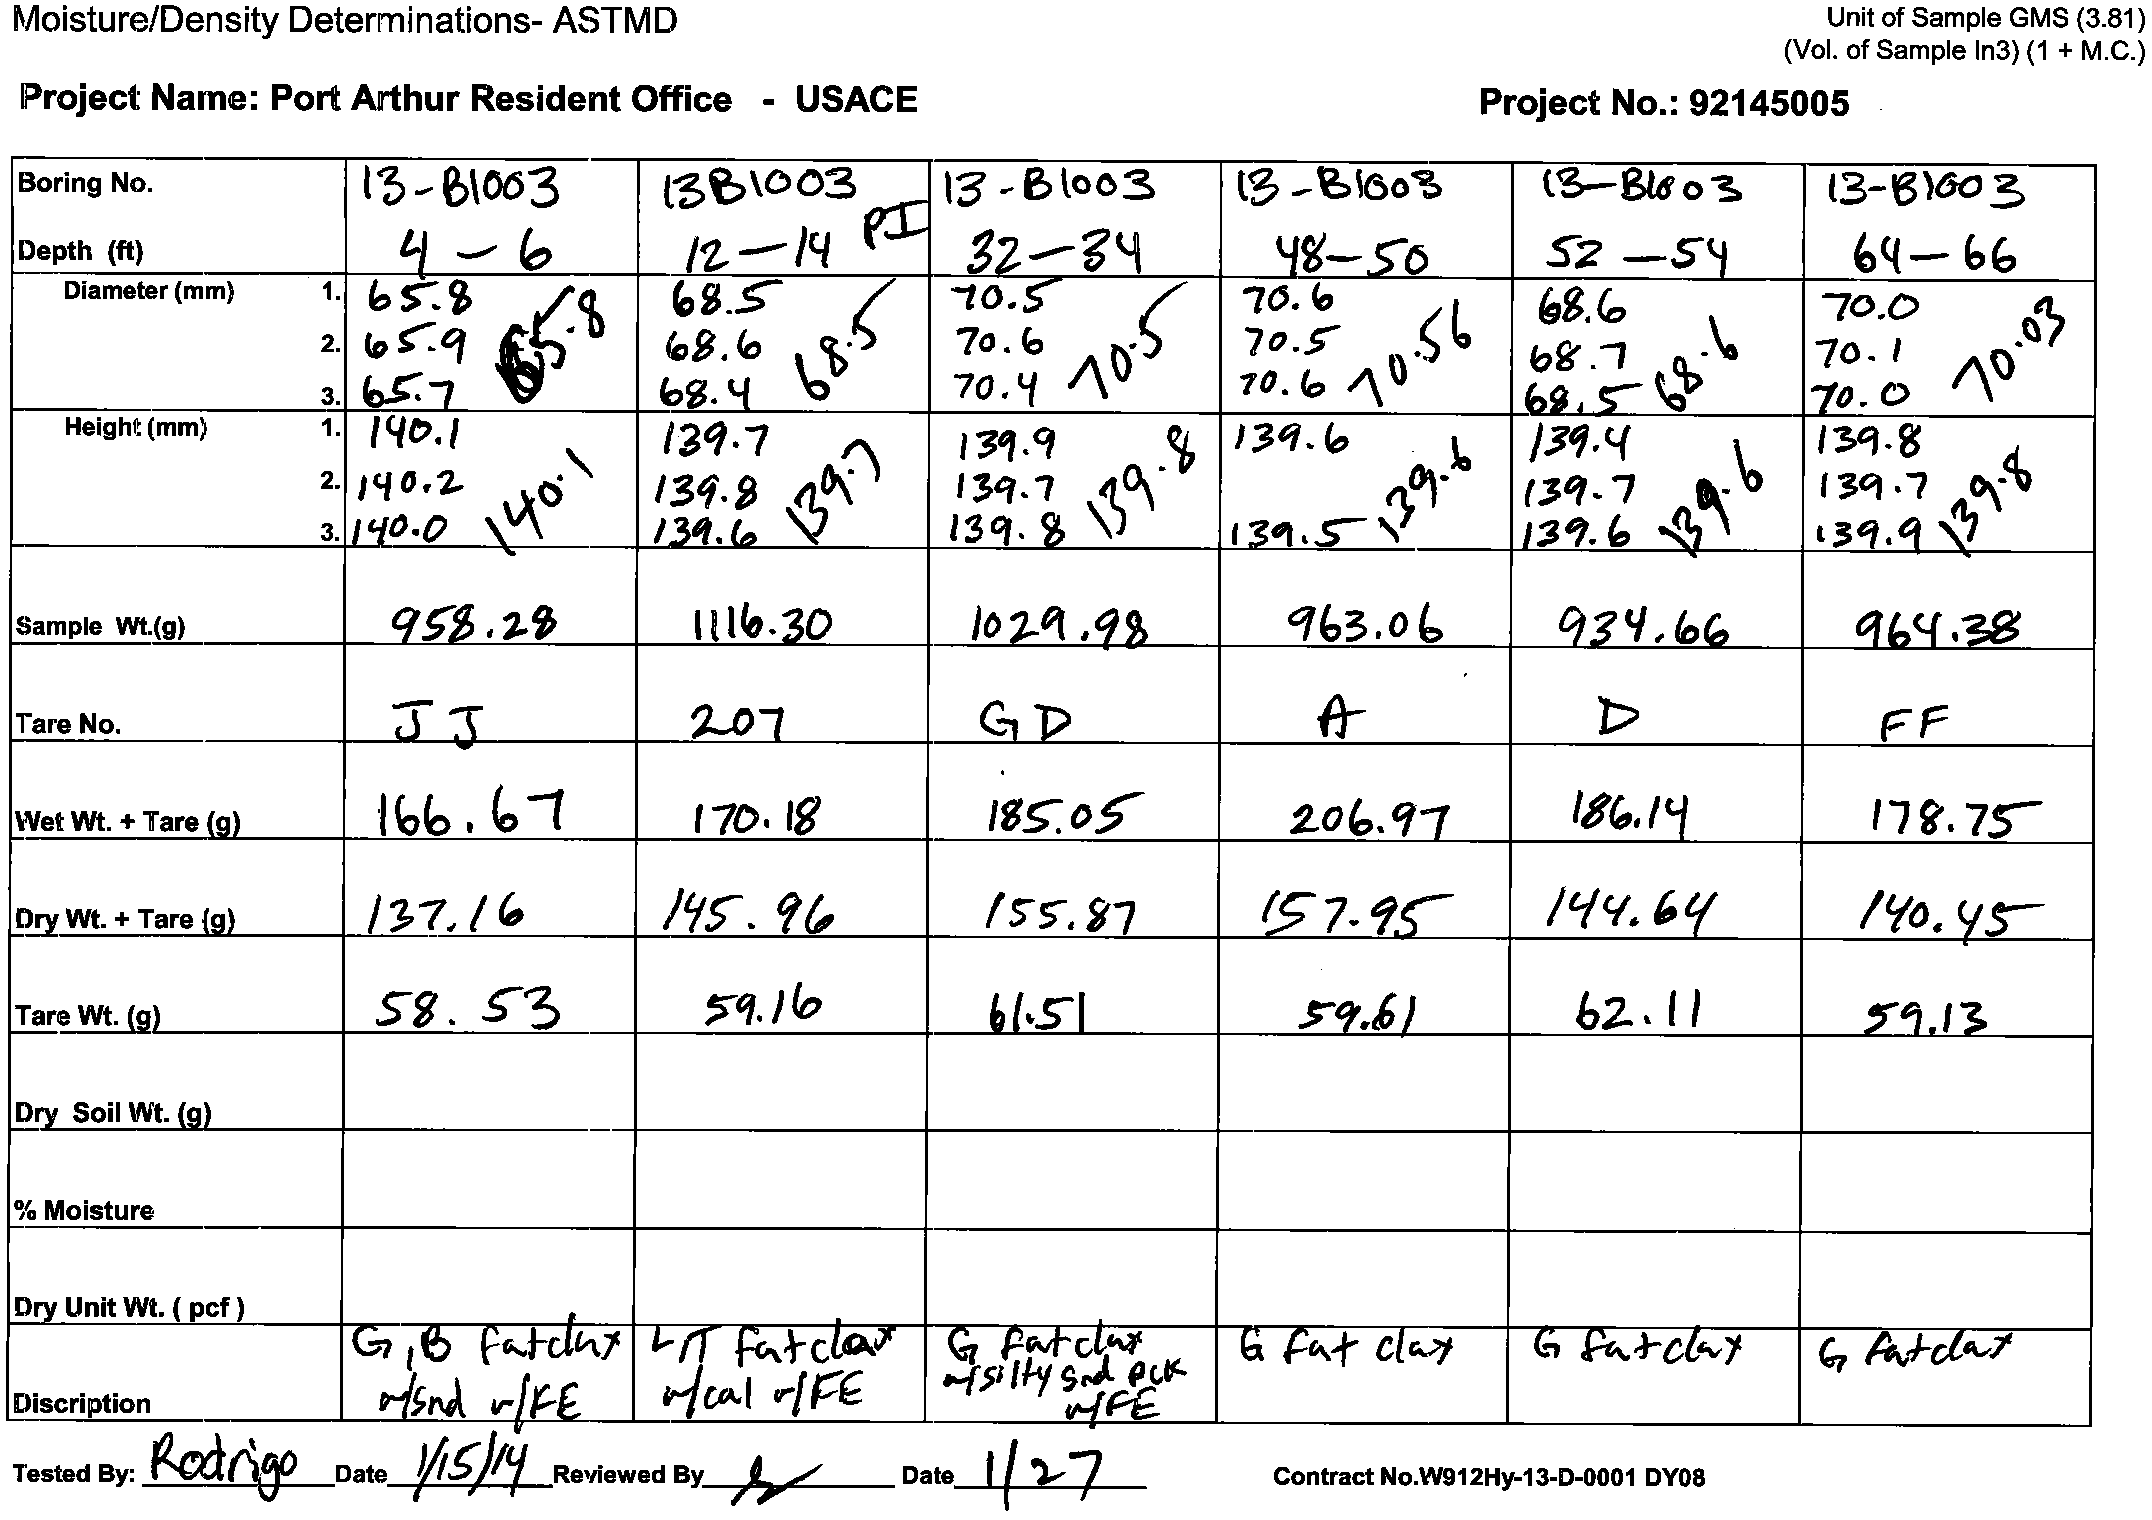 Moisture/Density Determinations- ASTMD
Unit of Sample GMS (3.81)
(Vol. of Sample In3) (1 + M.C.)
Project Name: Port Arthur Resident Office - USACE
Project No.: 92145005
Boring No. 13-B1003 13B1003 13-B1003 13-B1003 13-B1003 13-B1003
Depth (ft) 4-6 12-14 PI 32-34 48-50 52-54 64-66
Diameter (mm) 1. 65.8 68.5 70.5 70.6 68.6 70.0
2. 65.9 65.8 68.6 68.5 70.6 70.5 70.5 70.56 68.7 68.6 70.1 70.03
3. 65.7 68.4 70.4 70.6 68.5 70.0
Height (mm) 1. 140.1 139.7 139.9 139.6 139.4 139.8
2. 140.2 140.1 139.8 139.7 139.7 139.8 139.6 139.7 139.6 139.7 139.8
3. 140.0 139.6 139.8 139.5 139.6 139.9
Sample Wt.(g) 958.28 1116.30 1029.98 963.06 934.66 964.38
Tare No. JJ 207 GD A D FF
Wet Wt. + Tare (g) 166.67 170.18 185.05 206.97 186.14 178.75
Dry Wt. + Tare (g) 137.16 145.96 155.87 157.95 144.64 140.45
Tare Wt. (g) 58.53 59.16 61.51 59.61 62.11 59.13
Dry Soil Wt. (g)
% Moisture
Dry Unit Wt. ( pcf )
G,B fat clay L/T fat clay G fat clay G fat clay G fat clay G fat clay
w/snd w/FE w/cal w/FE w/silty snd pck
w/FE
Discription
Tested By: Rodrigo Date 1/15/14 Reviewed By Date 1/27 Contract No.W912Hy-13-D-0001 DY08